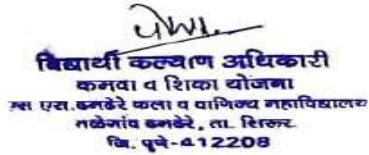 विद्यार्थी कल्याण अधिकारी
कमवा व शिका योजना
एस.ढमढेरे कला व वाणिज्य महाविद्यालय
तळेगांव ढमढेरे, ता. शिरूर
जि. पुणे-412208